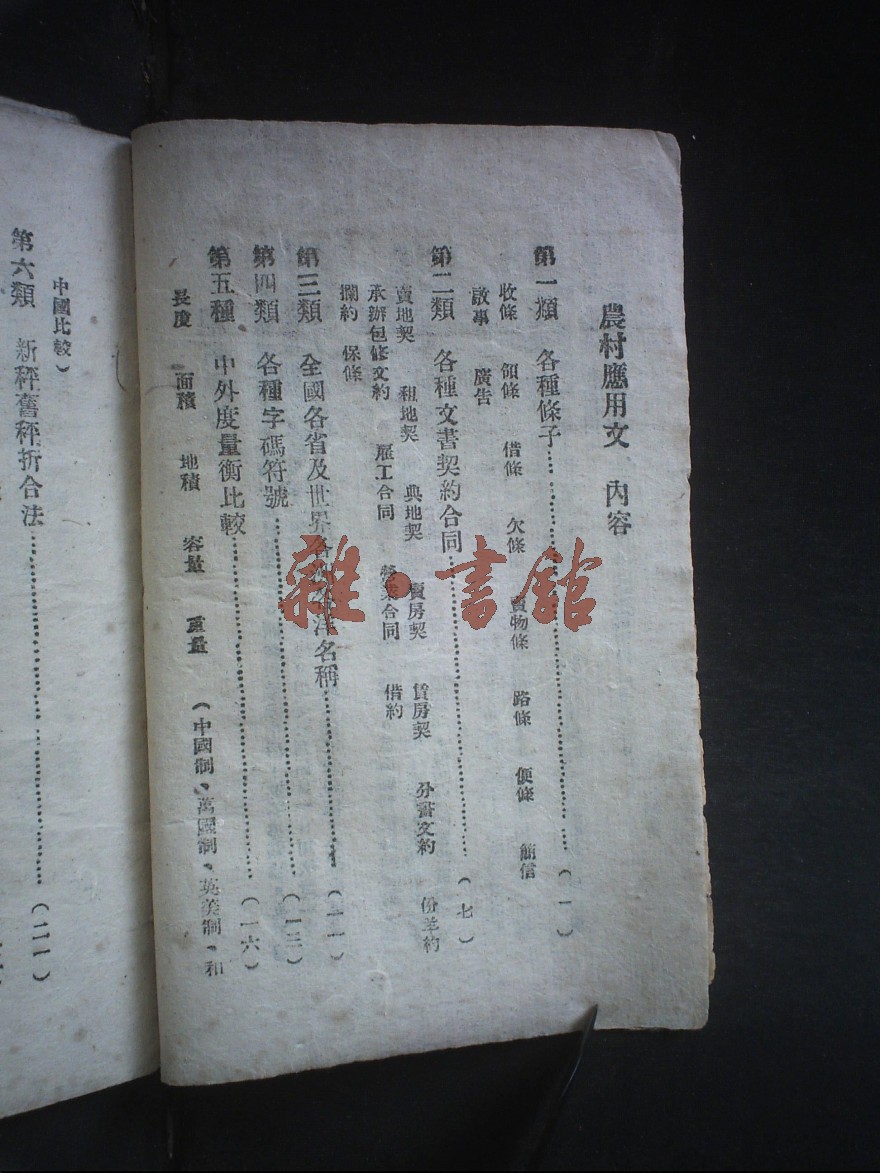 農村應用文 內容
第一類 各種條子……………………（一）
收條 領條 借條 欠條 賣物條 路條 便條 簡信
啟事 廣告
第二類 各種文書契約合同……………………（七）
賣地契 租地契 典地契 賣房契 賃房契 分醫文約 份羊約
承辦包修文約 雇工合同 營業合同 借約
攔約 保條
第三類 全國各省及世界各 名稱……………………（一一）
第四類 各種字碼符號……………………（一三）
第五種 中外度量衡比較……………………（一六）
長度 面積 地積 容量 重量 （中國制、萬國制、英美制、和
中國比較）
第六類 新秤舊秤折合法……………………（二一）
雜·書館